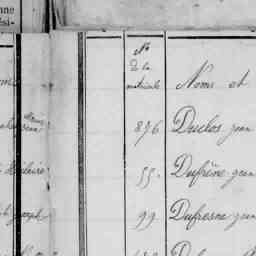 nne
ési-
No
de la
matricule Noms et
876 Duclos Jean
Hilaire 55. Dufrène Jean
Joseph 99 Dufresne Jean